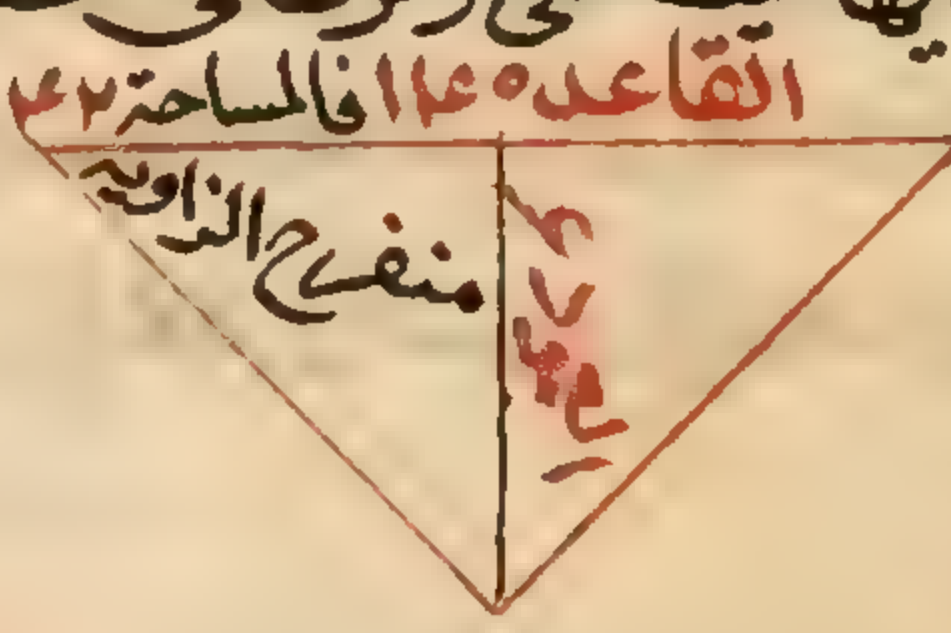 القاعده ١٤ فالمساحة ٤٢
منفرج الزاويه
العمود ٦